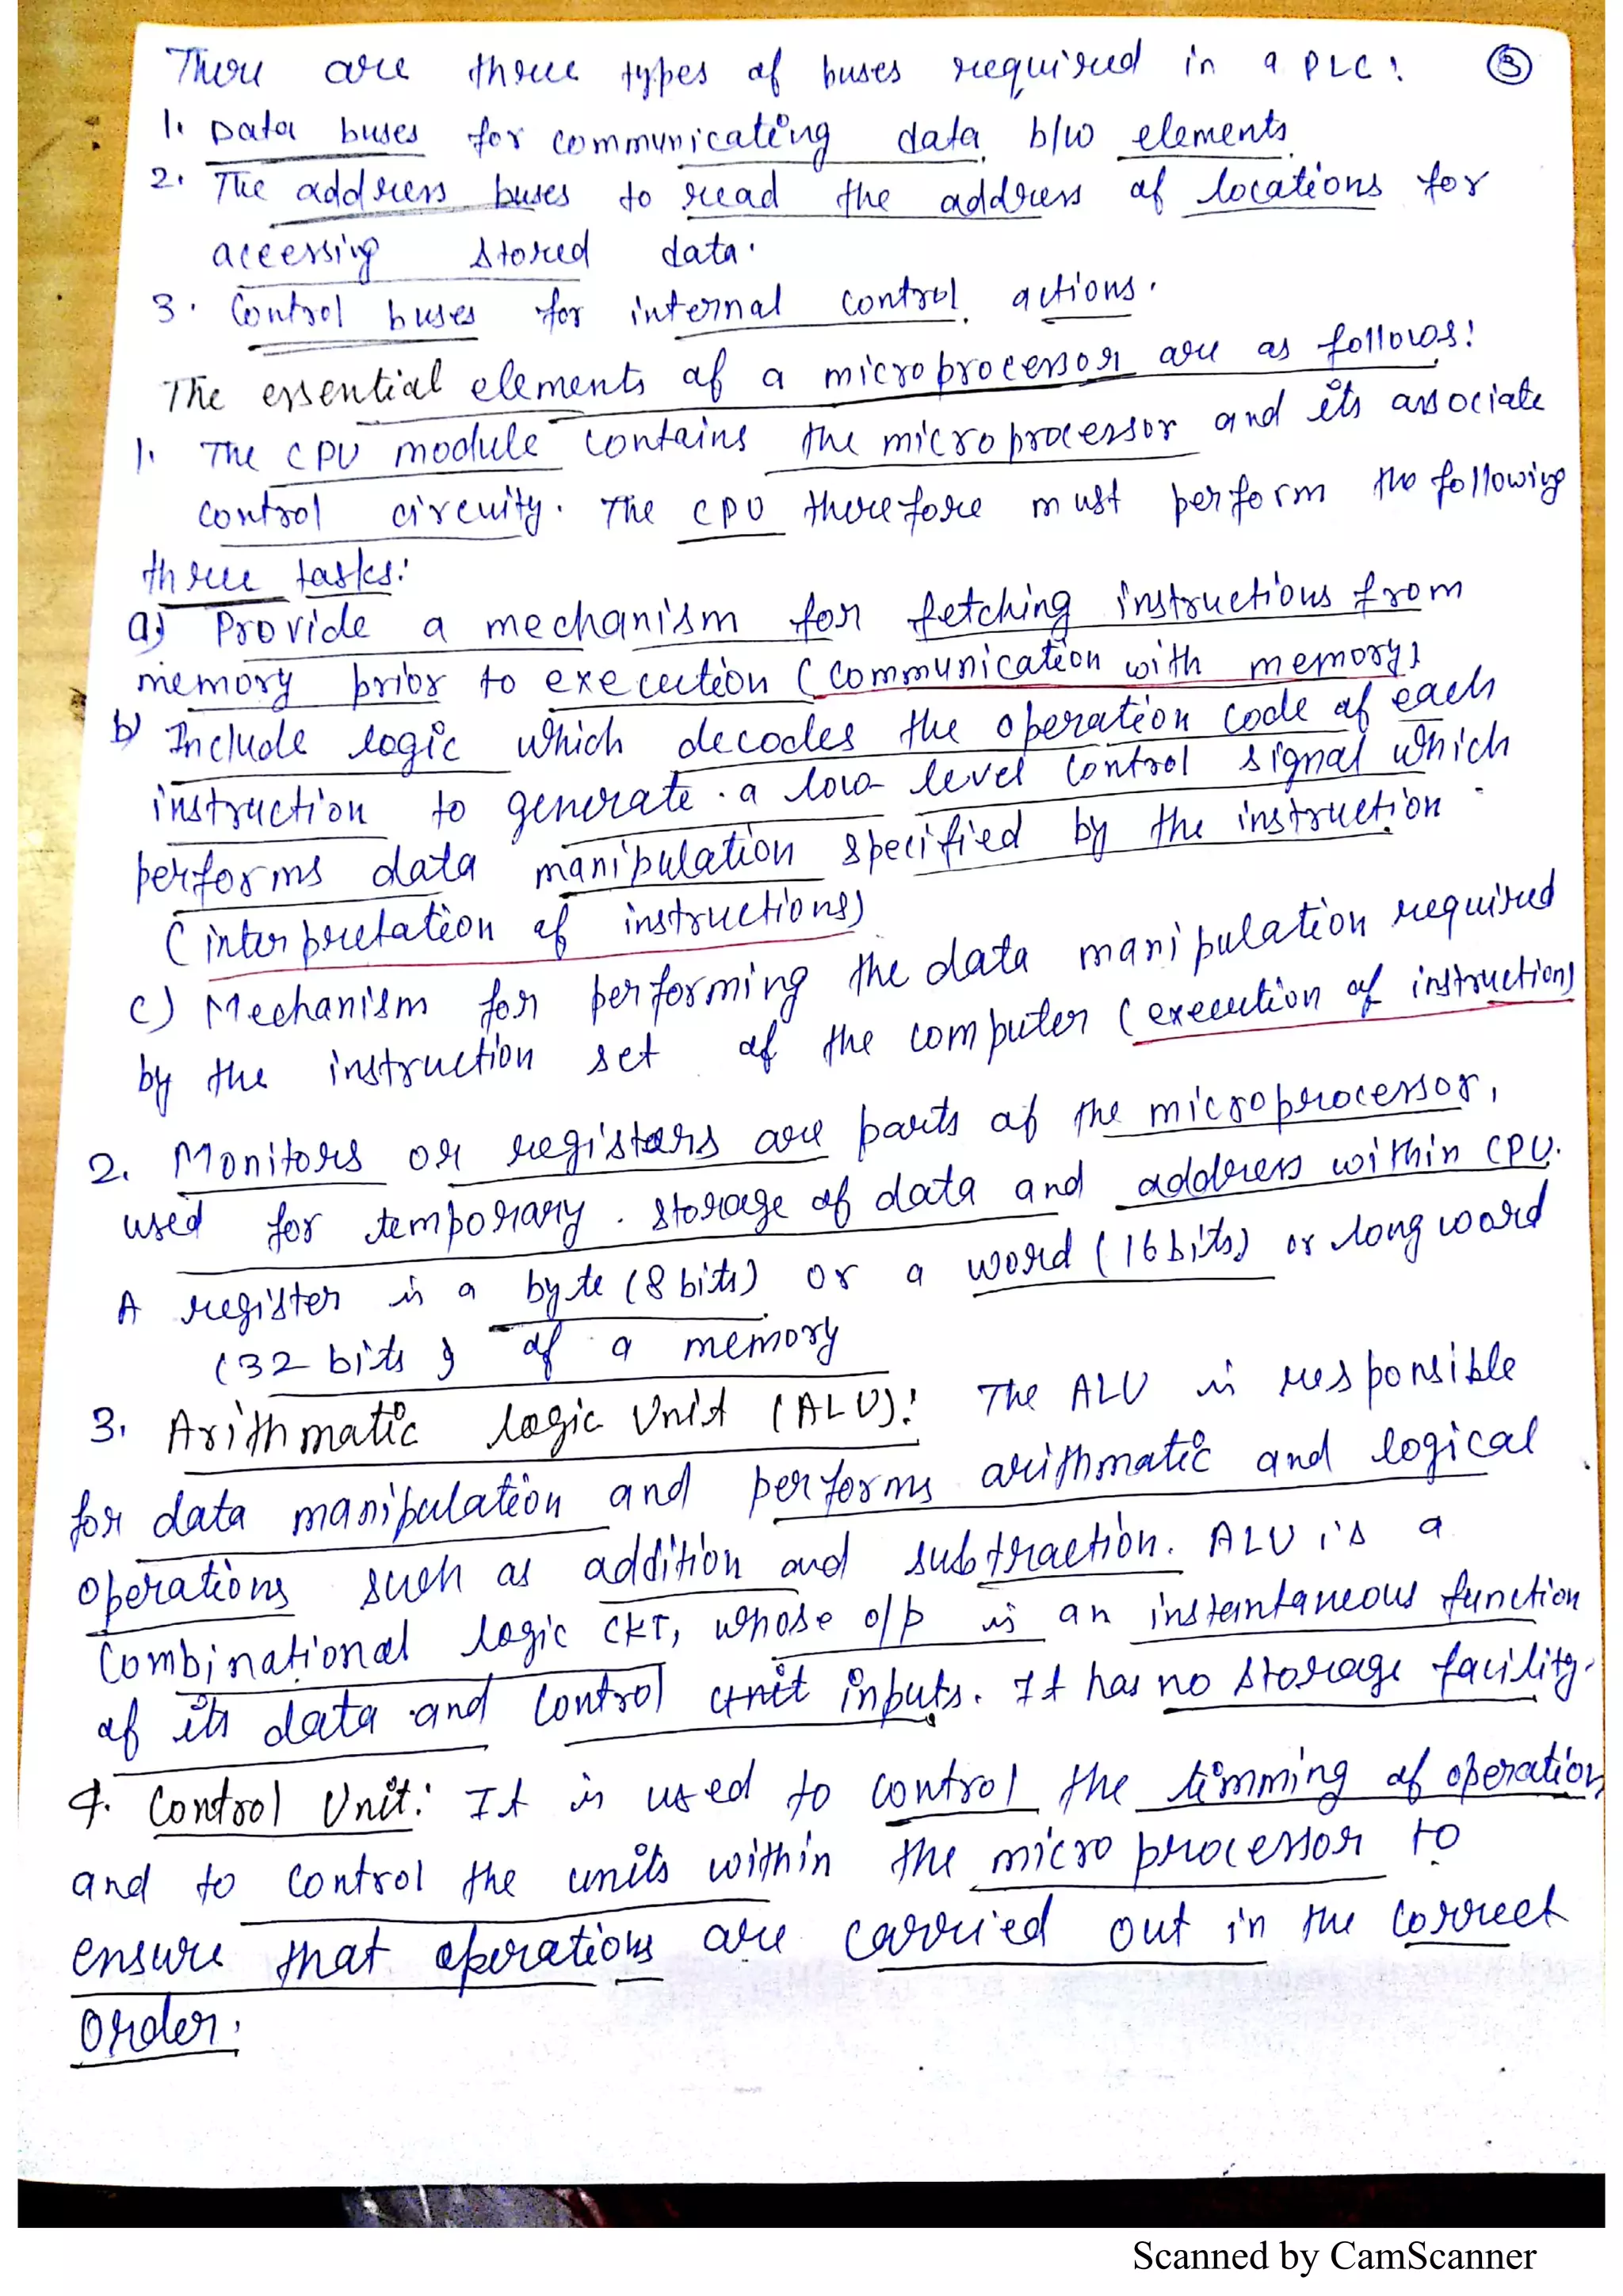 There are three types of buses required in a PLC: 3
1. Data buses for communicating data b/w elements.
2. The address buses to read the address of locations for
accessing stored data.
3. Control buses for internal control actions.
The essential elements of a microprocessor are as follows:
1. The CPU module contains the microprocessor and its associate
control circuity. The CPU therefore must perform the following
three tasks:
a) Provide a mechanism for fetching instructions from
memory prior to execution (communication with memory)
b) Include logic which decodes the operation code of each
instruction to generate a low level control signal which
performs data manipulation specified by the instruction.
(interpretation of instructions)
c) Mechanism for performing the data manipulation required
by the instruction set of the computer (execution of instructions)
2. Monitors or registers are parts of the microprocessor,
used for temporary storage of data and address within CPU.
A register is a byte (8 bits) or a word (16 bits) or long word
(32 bits) of a memory
3. Arithmatic logic Unit (ALU): The ALU is responsible
for data manipulation and performs arithmatic and logical
operations such as addition and subtraction. ALU is a
Combinational logic CKT, whose o/p is an instantaneous function
of its data and control unit inputs. It has no storage facility.
4. Control Unit: It is used to control the timming of operation
and to control the units within the microprocessor to
ensure that operations are carried out in the correct
order.
Scanned by CamScanner